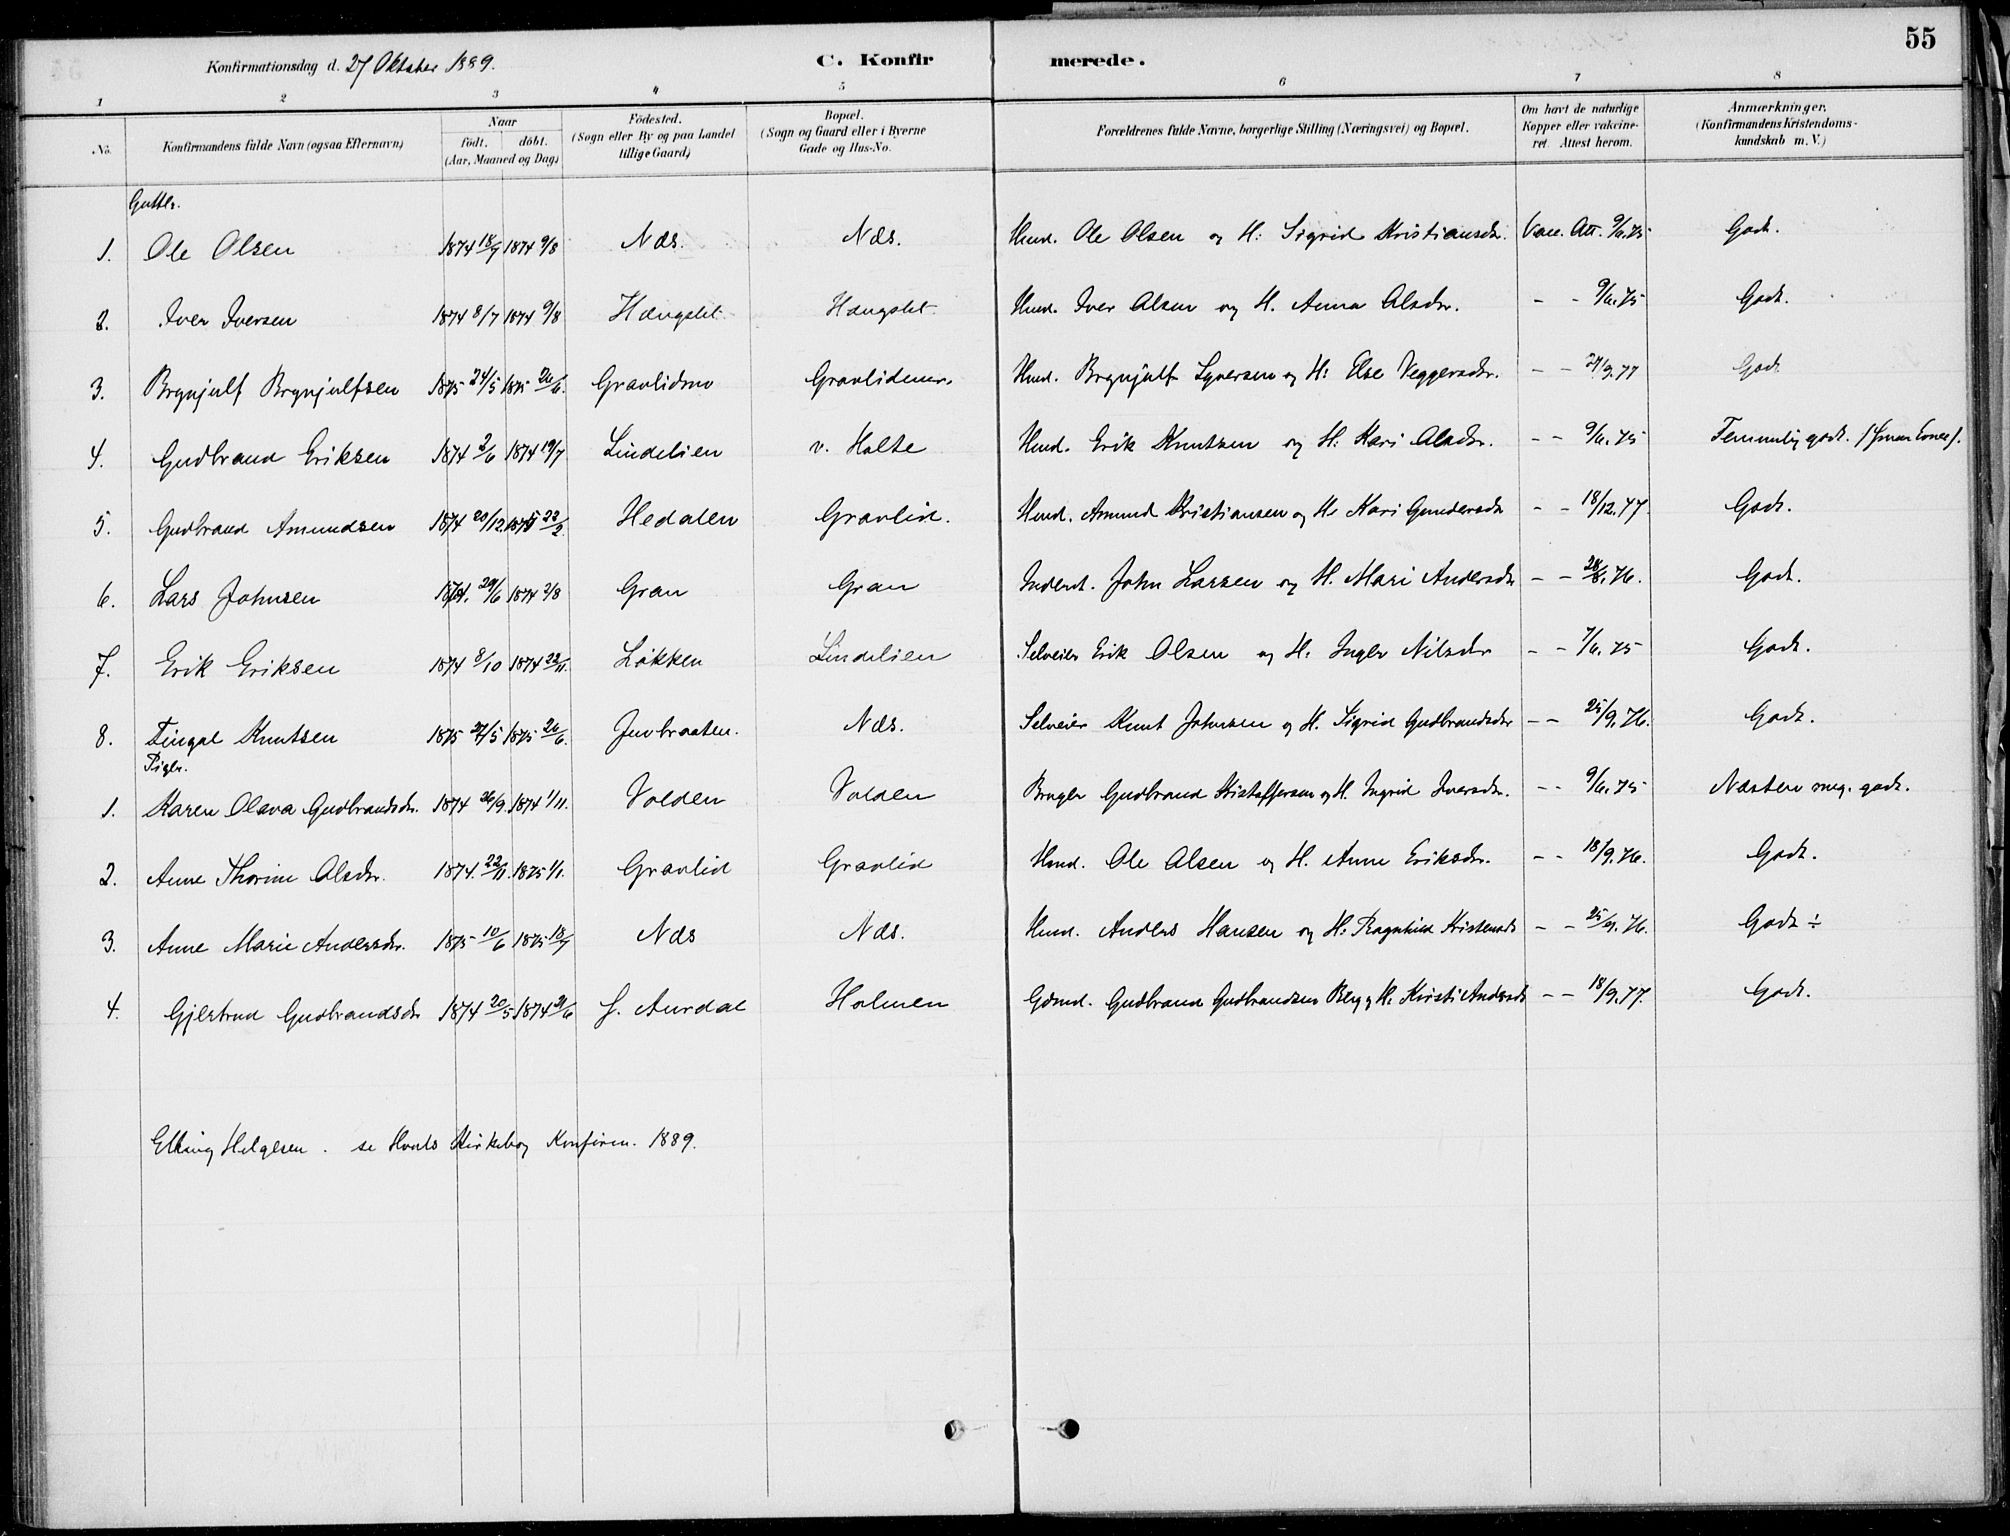 55
Konfirmationsdag d. 27 Oktober 1889.
C. Konfirmerede.
1 2 3 4 5 6 7 8
No. Konfirmandens fulde Navn (ogsaa Efternavn) Naar födt. döbt. (Aar, Maaned og Dag) Födested. (Sogn eller By og paa Landet tillige Gaard) Bopæl. (Sogn og Gaard eller i Byerne Gade og Hus-No. Forældrenes fulde Navne, borgerlige Stilling (Næringsvei) og Bopæl. Om havt de naturlige Kopper eller vakcineret. Attest herom. Anmærkninger. (Konfirmandens Kristendomskundskab m. V.)
Gutter.
1. Ole Olsen 1874 18/9 1874 9/8 Næs. Næs. Hmd. Ole Olsen og H: Sigrid Kristiansdr. Vac. Att. 9/6.75 Godt.
2. Iver Iversen 1874 8/7 1874 9/8 Hængslet Hængslet Hmd. Iver Olsen og H. Anna Olsdr. - - 9/6.75 Godt.
3. Brynjulf Brynjulfsen 1875 24/5 1875 26/6. Gravlidmo Hmd. Brynjulf Syversen og H: Else Veggersdr. - - 27/9.77 Godt
4. Gudbrand Eriksen 1874 2/6 1874 19/7 Lindelien v. Holte Hmd. Erik Knutsen og H: Kari Olsdr. - - 9/6.75 Temmelig godt.
5. Gudbrand Amundsen 1874 20/12 1875 22/2. Hedalen Gravlid. Hmd. Amund Kristiansen og H. Kari Gundersdr - - 18/12.77. Godt.
6. Lars Johnsen 1874. 29/6 1874 2/8 Gran Gran Inderst. John Larsen og H. Mari Andersdr - - 28/8.76. Godt.
7. Erik Eriksen 1874 8/10 1874 22/11. Løkken Lindelien Selveier Erik Olsen og H. Ingbr Nilsdr - - 7/6.75 Godt.
8. Fingal Knutsen 1875 27/5 1875 26/6. Juvbraaten. Næs. Selveier Knut Johnsen og H. Sigrid Gudbrandsdr - - 25/9.76. Godt.
Piger.
1. Karen Olava Gudbrandsdr. 1874 26/9. 1874 1/11. Volden Volden Bruger Gudbrand Kristoffersen og H. Ingrid Iversdr. - - 9/6.75 Næsten meg. godt.
2. Anne Thorine Olsdr. 1874. 22/11. 1875 1/1. Gravlid Gravlid Hmd. Ole Olsen og H. Anne Eriksdr. - - 18/9.76. Godt.
3. Anne Marie Andersdr. 1875 10/6 1875 18/7 Næs Næs. Hmd. Anders Hansen og H: Ragnhild Kristensdr - - 25/9.76. Godt ÷
4. Gjertrud Gudbrandsdr 1874 20/5. 1874 21/6 S. Aurdal Holmen Gdmd. Gudbrand Gudbrandsen Berg og H. Kristi Andersdr - - 18/9.77. Godt.
Elling Helgesen. se Hovds Kirkebog Konfirm. 1889.